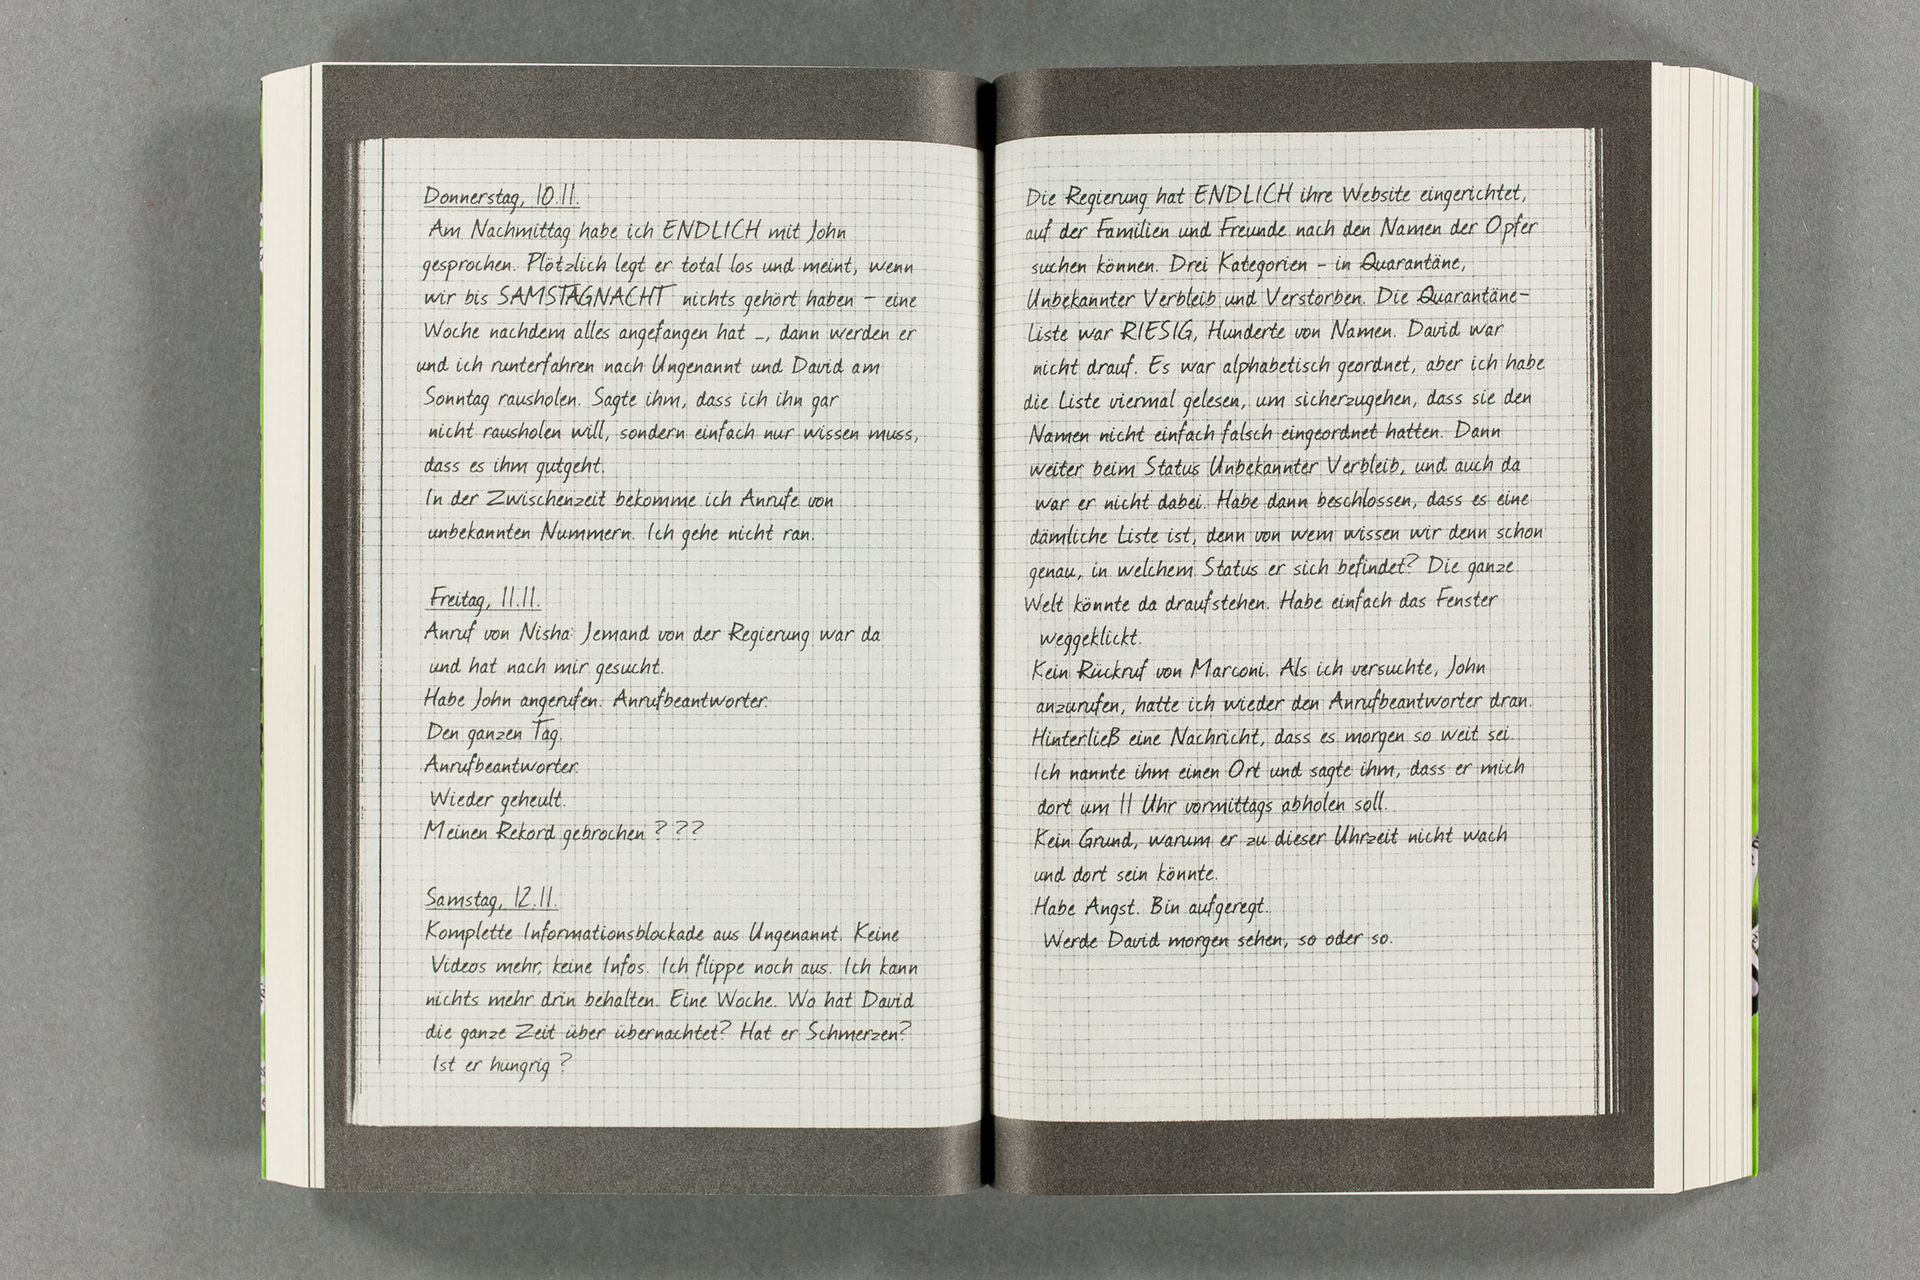 Donnerstag, 10.11.
Am Nachmittag habe ich ENDLICH mit John
gesprochen. Plötzlich legt er total los und meint, wenn
wir bis SAMSTAGNACHT nichts gehört haben – eine
Woche nachdem alles angefangen hat –, dann werden er
und ich runterfahren nach Ungenannt und David am
Sonntag rausholen. Sagte ihm, dass ich ihn gar
nicht rausholen will, sondern einfach nur wissen muss,
dass es ihm gutgeht.
In der Zwischenzeit bekomme ich Anrufe von
unbekannten Nummern. Ich gehe nicht ran.
Freitag, 11.11.
Anruf von Nisha: Jemand von der Regierung war da
und hat nach mir gesucht.
Habe John angerufen. Anrufbeantworter.
Den ganzen Tag.
Anrufbeantworter.
Wieder geheult.
Meinen Rekord gebrochen ???
Samstag, 12.11.
Komplette Informationsblockade aus Ungenannt. Keine
Videos mehr, keine Infos. Ich flippe noch aus. Ich kann
nichts mehr drin behalten. Eine Woche. Wo hat David
die ganze Zeit über übernachtet? Hat er Schmerzen?
Ist er hungrig?
Die Regierung hat ENDLICH ihre Website eingerichtet,
auf der Familien und Freunde nach den Namen der Opfer
suchen können. Drei Kategorien – in Quarantäne,
Unbekannter Verbleib und Verstorben. Die Quarantäne-
Liste war RIESIG, Hunderte von Namen. David war
nicht drauf. Es war alphabetisch geordnet, aber ich habe
die Liste viermal gelesen, um sicherzugehen, dass sie den
Namen nicht einfach falsch eingeordnet hatten. Dann
weiter beim Status Unbekannter Verbleib, und auch da
war er nicht dabei. Habe dann beschlossen, dass es eine
dämliche Liste ist, denn von wem wissen wir denn schon
genau, in welchem Status er sich befindet? Die ganze
Welt könnte da draufstehen. Habe einfach das Fenster
weggeklickt.
Kein Rückruf von Marconi. Als ich versuchte, John
anzurufen, hatte ich wieder den Anrufbeantworter dran.
Hinterließ eine Nachricht, dass es morgen so weit sei.
Ich nannte ihm einen Ort und sagte ihm, dass er mich
dort um 11 Uhr vormittags abholen soll.
Kein Grund, warum er zu dieser Uhrzeit nicht wach
und dort sein könnte.
Habe Angst. Bin aufgeregt.
Werde David morgen sehen, so oder so.